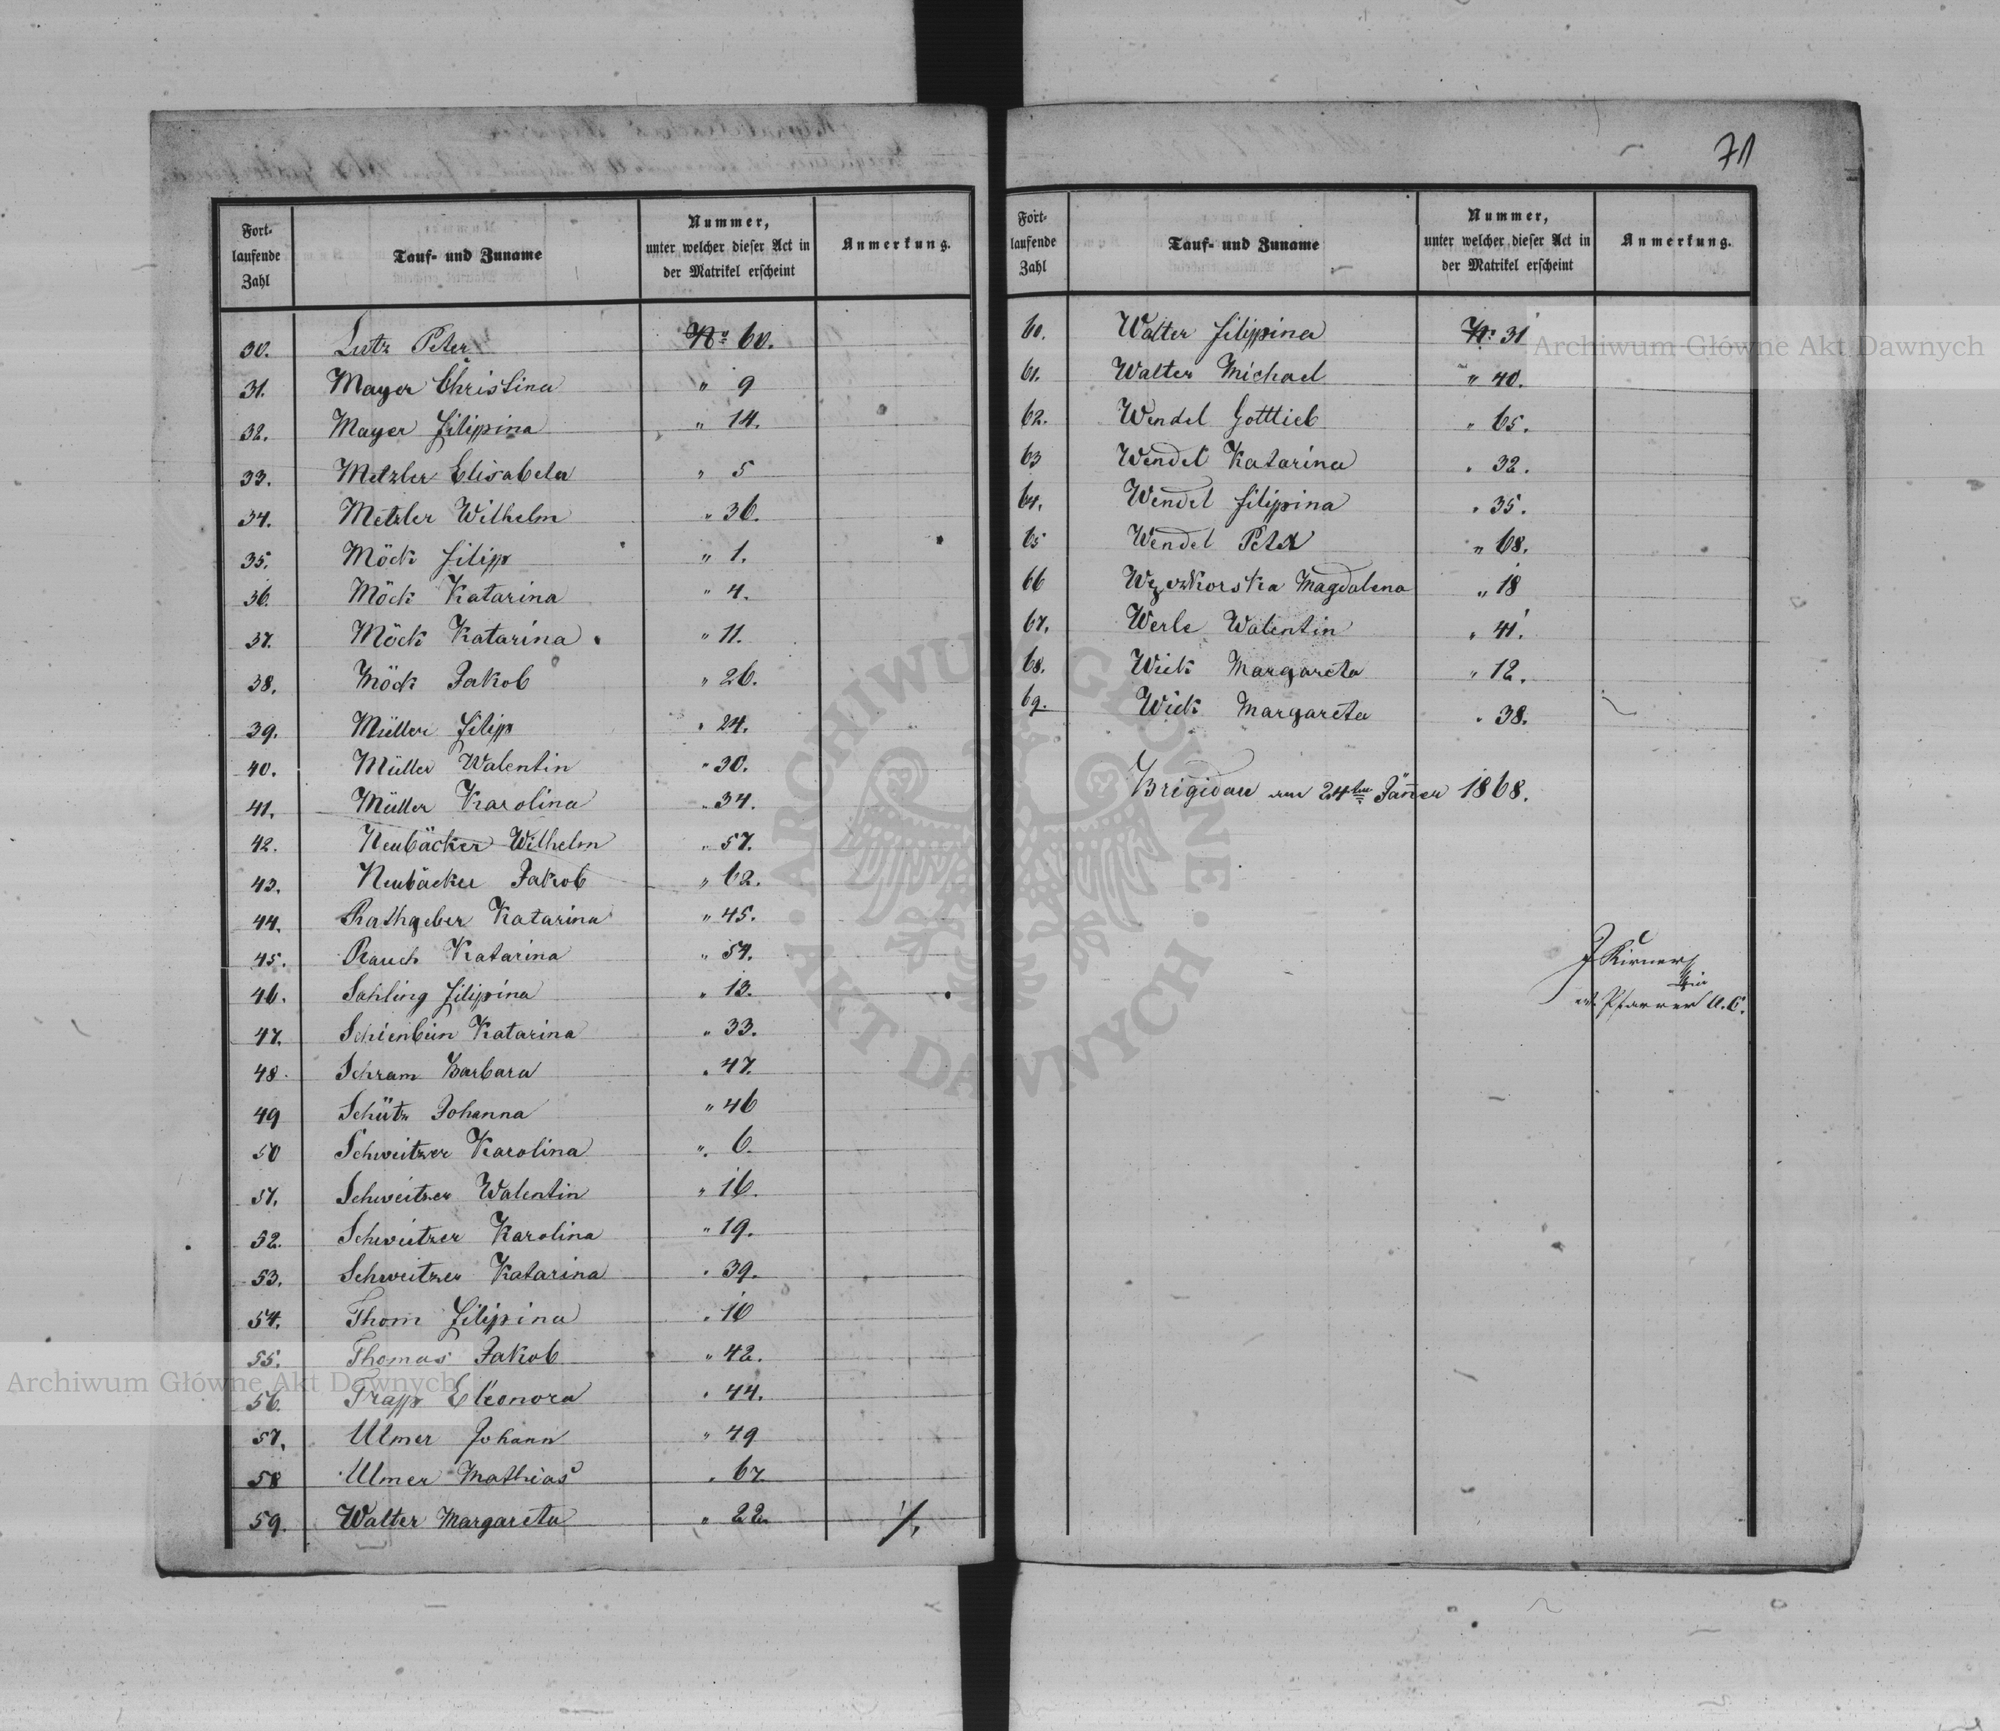 71
Fort-
laufende
Zahl
Tauf- und Zuname
Nummer,
unter welcher dieser Act in
der Matrikel erscheint
Anmerkung.
30. Lutz Peter No 60.
31. Mayer Christina " 9
32. Mayer Filippina " 14.
33. Metzler Elisabeta " 5
34. Metzler Wilhelm " 36.
35. Möck Filipp " 1.
36. Möck Katarina " 4.
37. Möck Katarina " 11.
38. Möck Jakob " 26.
39. Müller Filipp " 24.
40. Müller Walentin " 30.
41. Müller Karolina " 34.
42. Neubäcker Wilhelm " 57.
43. Neubäcker Jakob " 62.
44. Rathgeber Katarina " 45.
45. Rauch Katarina " 54.
46. Sahling Filippina " 13.
47. Schienbein Katarina " 33.
48. Schram Barbara " 47.
49 Schütz Johanna " 46
50 Schweitzer Karolina " 6.
51. Schweitzer Walentin " 16.
52. Schweitzer Karolina " 19.
53. Schweitzer Katarina " 39.
54. Thom Filippina " 10
55. Thomas Jakob " 42.
56. Trapp Eleonora " 44.
57. Ulmer Johann " 49
58 Ulmer Mathias " 67.
59. Walter Margareta " 22. ./.
Fort-
laufende
Zahl
Tauf- und Zuname
Nummer,
unter welcher dieser Act in
der Matrikel erscheint
Anmerkung.
60. Walter Filippina No 31
61. Walter Michael " 40.
62. Wendel Gottlieb " 65.
63 Wendel Katarina " 32.
64. Wendel Filippina " 35.
65 Wendel Peter " 68.
66 Magdalena " 18
67. Werle Walentin " 41.
68. Wick Margareta " 12.
69. Wick Margareta " 38.
Brigidau am 24ten Jänner 1868.
J Kirner
ev. Pfarrer A.C.
Archiwum Główne Akt Dawnych
Archiwum Główne Akt Dawnych
ARCHIWUM GŁÓWNE · AKT DAWNYCH ·